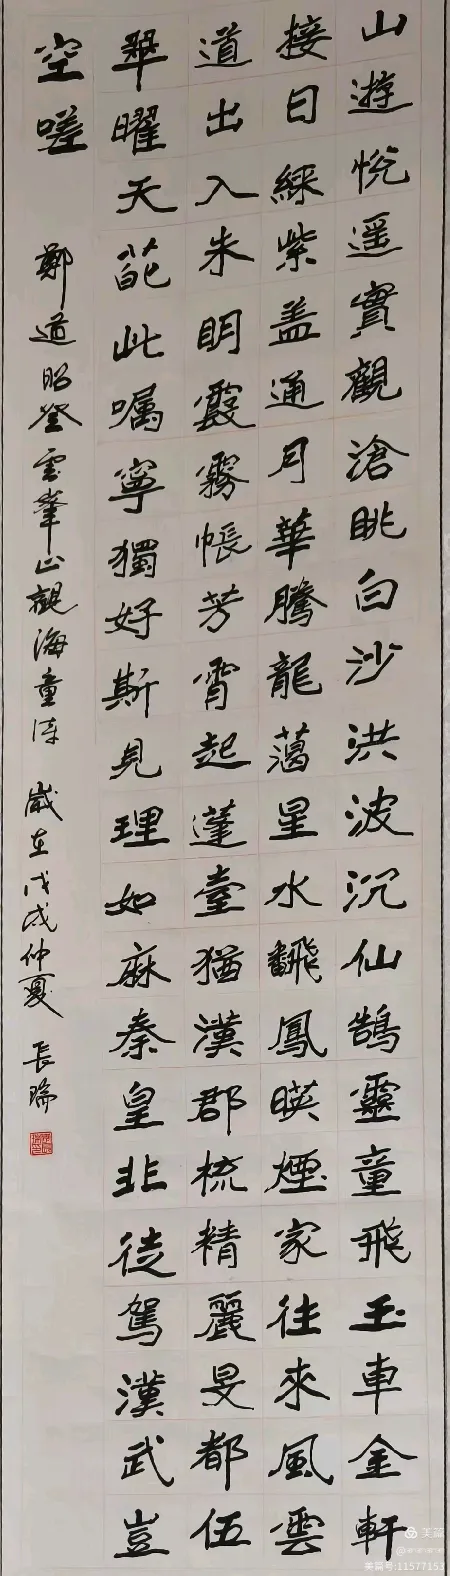 山游悅遥實觀滄眺白沙洪波沉仙鵠靈童飛玉車金軒
接日綵紫盖通月華騰龍蔼星水飜鳳暎煙家往來風雲
道出入朱明霞霧帳芳宵起蓬臺猶漢郡梳精麗旻都伍
翠曜天葩此嘱寧獨好斯見理如麻秦皇非徒駕漢武豈
空嗟
鄭道昭登雲峯山觀海童诗 歲在戊戌仲夏 長瑞
美篇
美篇号:11577153